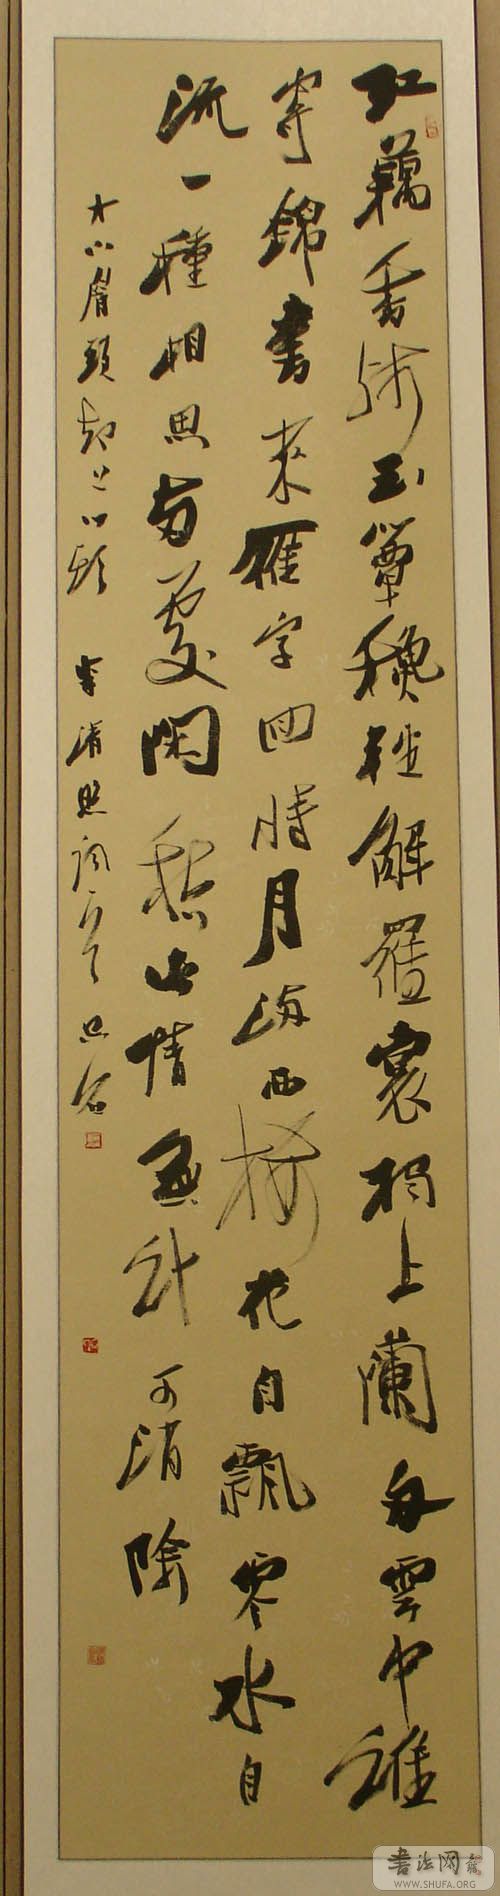 紅藕香殘玉簟秋輕解羅裳獨上蘭舟雲中誰
寄錦書來雁字回時月滿西樓花自飄零水自
流一種相思兩處閑愁此情無計可消除
才下眉頭却上心頭 李清照詞
書法网
WWW.SHUFA.ORG